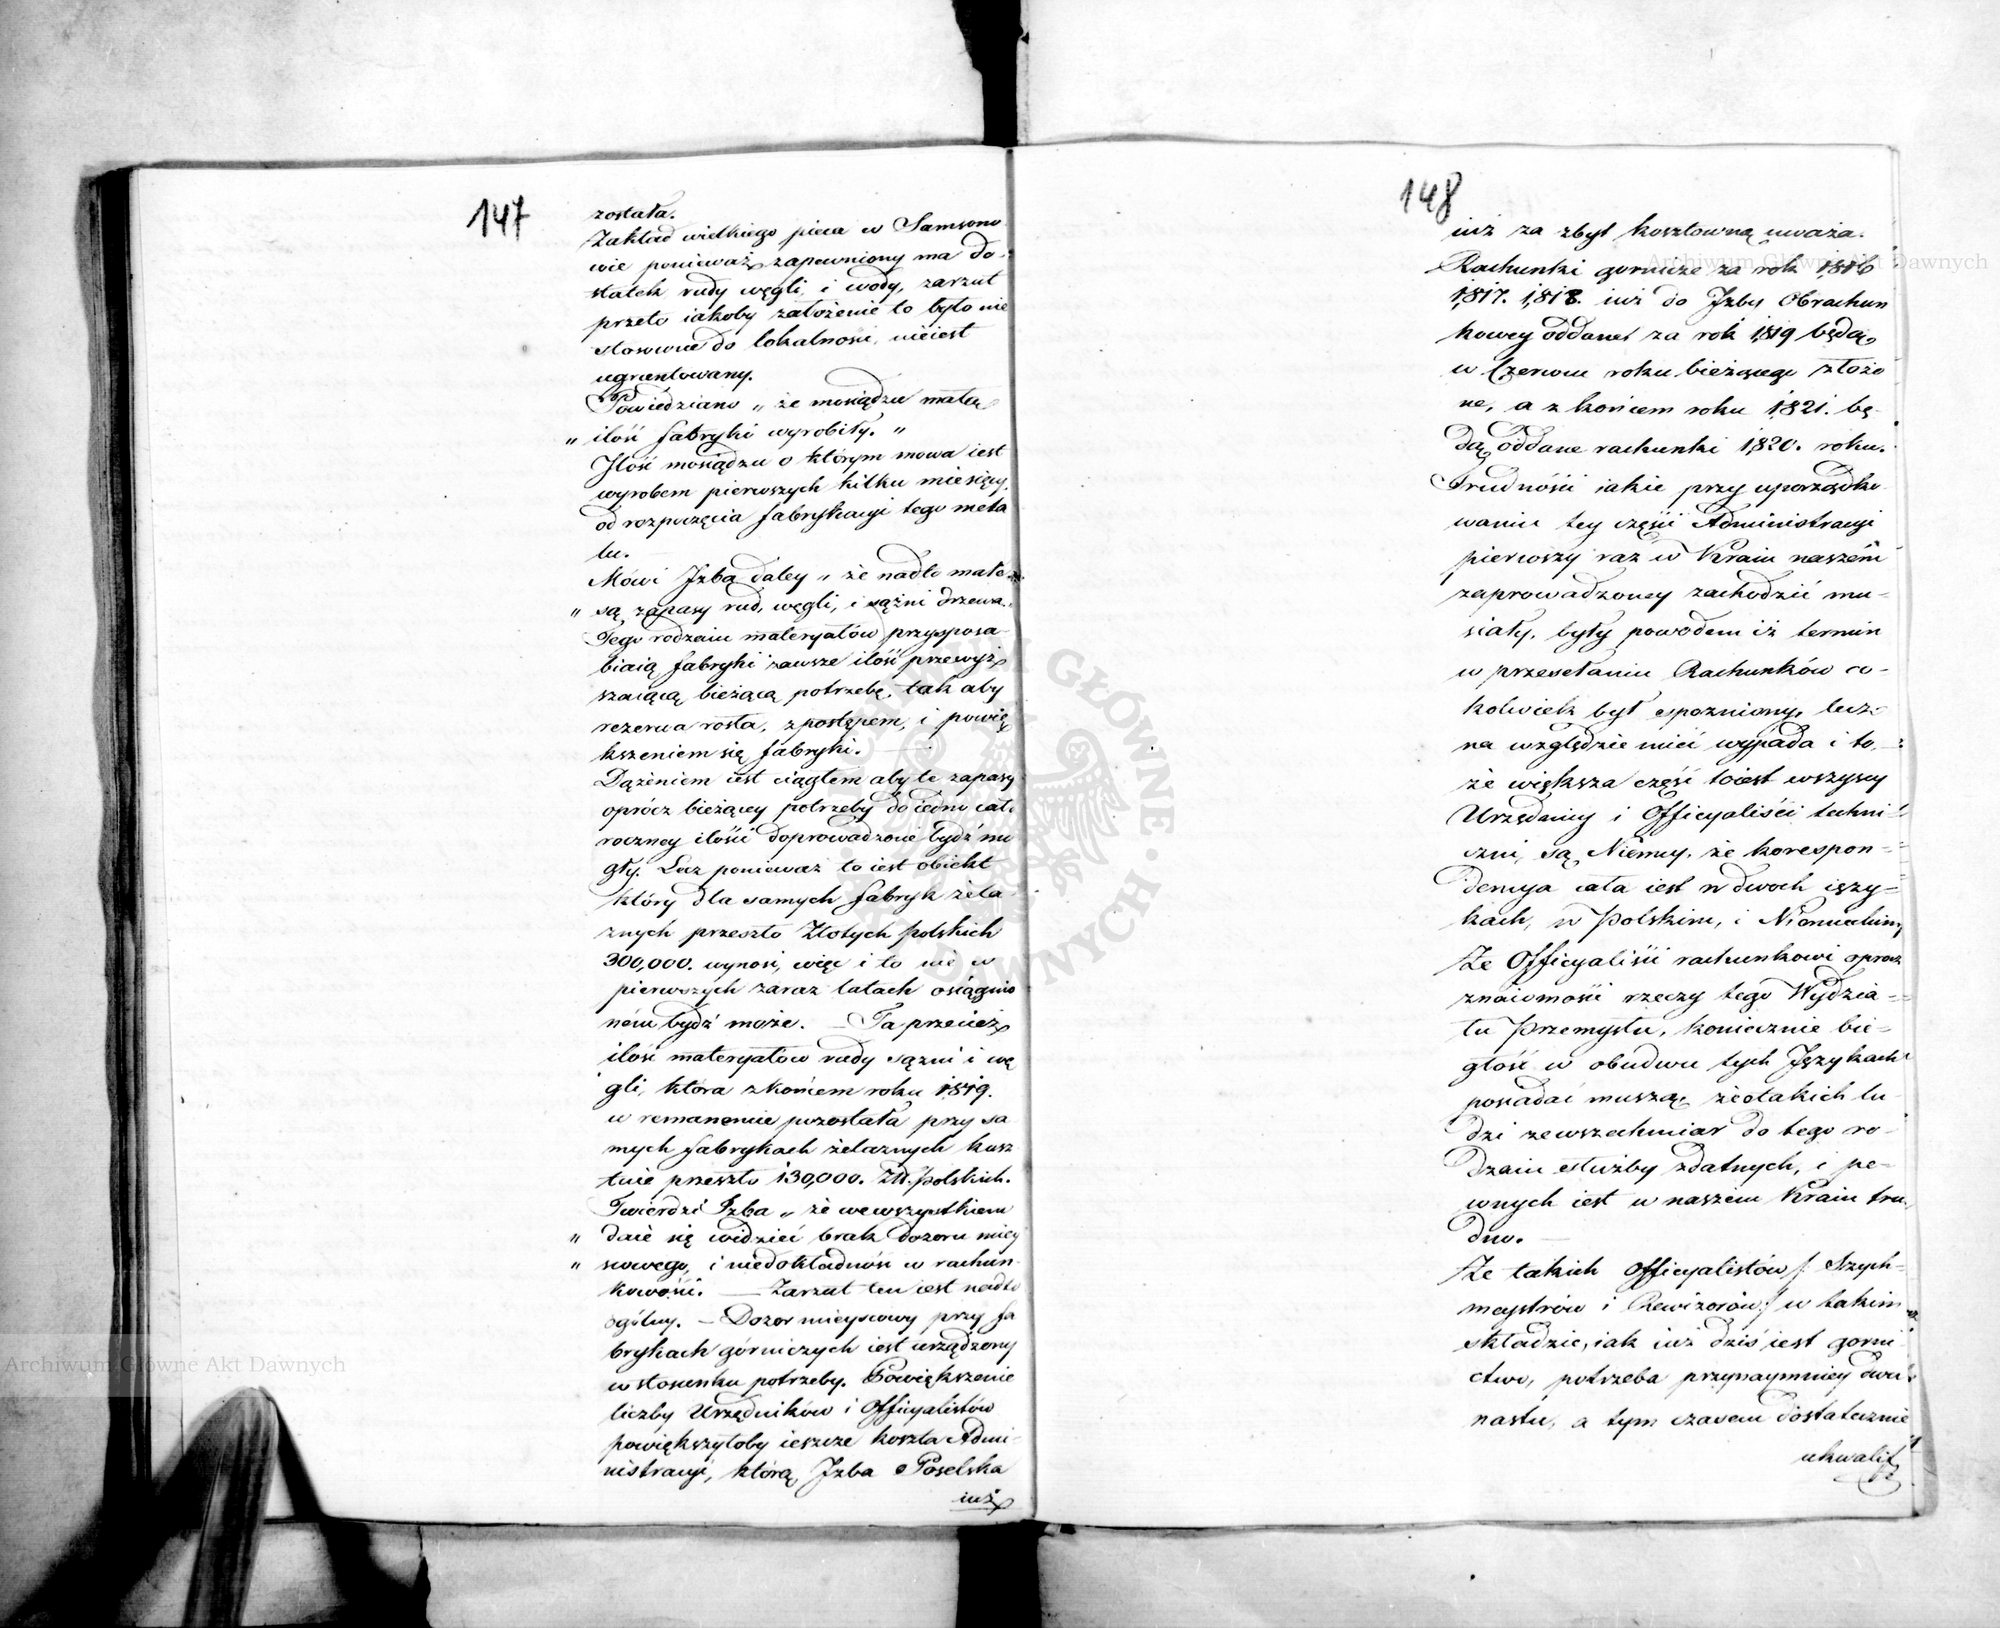 147
została.
Zakład wielkiego pieca w Samsono
wie ponieważ zapewniony ma do-
statek rudy węgli, i wody, zarzut
przeto iakoby założenie to było nie
stosowne do lokalności, nieiest
ugruntowany.
Powiedziano „ że mosiądzu małą
„ ilość fabryki wyrobiły. „
Ilość mosiądzu o którym mowa iest
wyrobem pierwszych kilku miesięcy,
od rozpoczęcia fabrykacyi tego meta
lu.
Mówi Izba daley „ że nadto małe
„ są zapasy rud, węgli, i sążni drzewa.„
Tego rodzaiu materyałów przysposa-
biaią fabryki zawsze ilość przewyż
szaiącą bieżącą potrzebę, tak aby
rezerwa rosła, z postępem, i powię
kszeniem się fabryki. —
Dążeniem iest ciągłem aby te zapasy
oprócz bieżącey potrzeby do iedno cało
roczney ilości doprowadzone bydź mo
gły. Lecz ponieważ to iest obiekt
który dla samych fabryk żela-
znych przeszło Złotych polskich
300,000. wynosi, więc i to nie w
pierwszych zaraz latach osiągnio
nem bydź może. — Ta przecież
ilość materyałów rudy sążni i wę
gli, która z końcem roku 1819.
w remanencie pozostała przy sa
mych fabrykach żelaznych kosz
tuie przeszło 130,000. Złt. polskich.
Twierdzi Izba „ że we wszystkiem
„ daie się widzieć brak dozoru miey
„ scowego, i niedokładność w rachun-
kowości. — Zarzut ten iest nadto
ogólny. — Dozor mieyscowy przy fa
brykach górniczych iest urządzony
w stosunku potrzeby. Powiększenie
liczby Urzędników i Officyalistów
powiększyłoby ieszcze koszta Admi-
nistracyi, którą Izba Poselska
iuż
148
iuż za zbyt kosztowną uważa.
Rachunki gornicze za rok 1816
1817. 1818. iuż do Izby Obrachun
kowey oddane, za rok 1819 będą
w Czerwcu roku bieżącego złożo
ne, a z końcem roku 1821. bę-
dą oddane rachunki 1820. roku.
Trudności iakie przy uporządko-
waniu tey części Administracyi
pierwszy raz w Kraiu naszém
zaprowadzoney zachodzić mu-
siały, były powodem iż termin
w przesełaniu Rachunków co-
kolwiek był spozniony, lecz
na względzie mieć wypada i to,
że większa część toiest wszyscy
Urzędnicy i Officyaliści techni-
czni, są Niemcy, że korespon-
dencya cała iest w dwoch ięzy-
kach, w Polskim, i Niemieckim,
Ze Officyaliści rachunkowi oprocz
znaiomości rzeczy tego Wydzia-
łu Przemysłu, koniecznie bie-
głość w obudwu tych Językach
posiadać muszą, że o takich lu-
dzi ze wszechmiar do tego ro-
dzaiu służby zdatnych, i pe-
wnych iest w naszém Kraiu tru-
dno. —
Ze takich Officyalistów /: Szych-
meystrów i Rewizorów :/ w takim
składzie, iak iuż dziś iest gorni-
ctwo, potrzeba przynaymniey dwu-
nastu, a tym czasem dostatecznie
ukwalif
Archiwum Główne Akt Dawnych
Archiwum Główne Akt Dawnych
ARCHIWUM GŁÓWNE AKT DAWNYCH